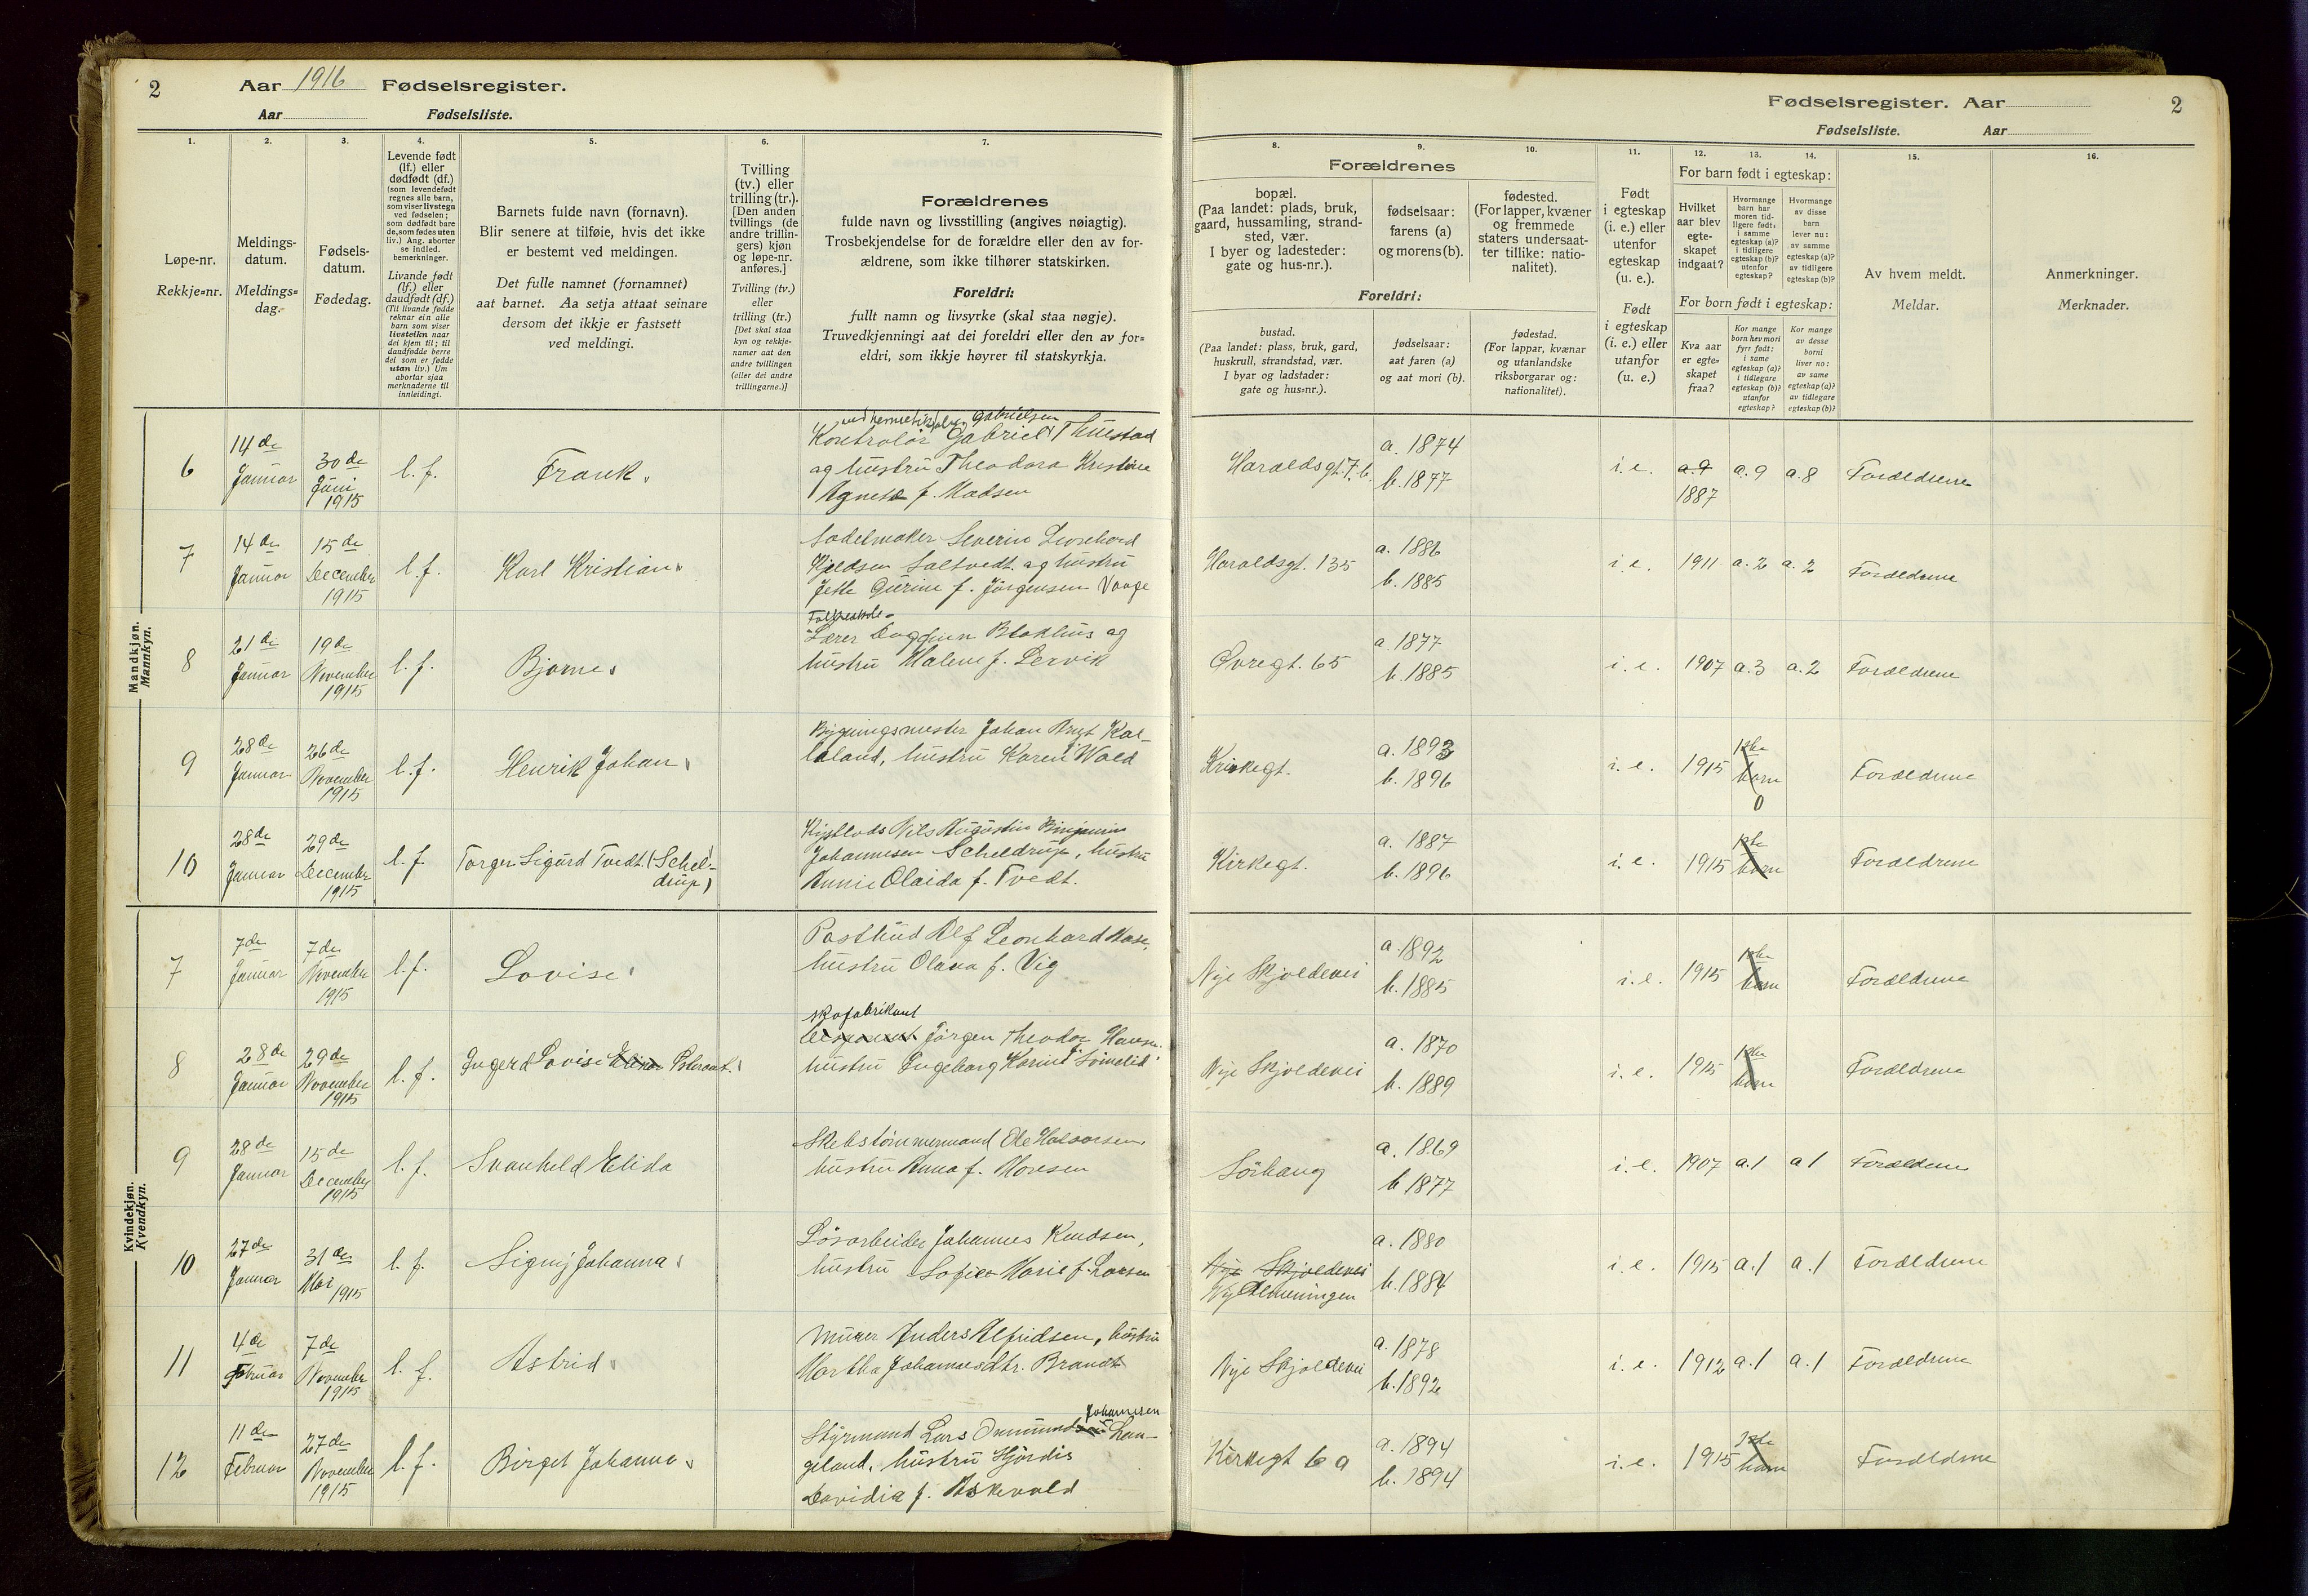 2
Aar 1916 Fødselsregister.
Aar Fødselsliste.
1.
2.
3.
4.
5.
6.
7.
Løpe-nr.
Rekkje=nr.
Meldings-
datum.
Meldings=
dag.
Fødsels-
datum.
Fødedag.
Levende født
(lf.) eller
dødfødt (df.)
(som levendefødt
regnes alle barn,
som viser livstegn
ved fødselen;
som dødfødt bare
de, som fødes uten
liv.) Ang. aborter
se indled.
bemerkninger.
Livande født
(lf.) eller
daudfødt (df.)
(Til livande fødde
reknar ein alle
barn som viser
livsteikn naar
dei kjem til; til
daudfødde berre
dei som er fødde
utan liv.) Um
abortar sjaa
merknaderne til
innleidingi.
Barnets fulde navn (fornavn).
Blir senere at tilføie, hvis det ikke
er bestemt ved meldingen.
Det fulle namnet (fornamnet)
aat barnet. Aa setja attaat seinare
dersom det ikkje er fastsett
ved meldingi.
Tvilling
(tv.) eller
trilling (tr.).
[Den anden
tvillings (de
andre trillin-
gers) kjøn
og løpe-nr.
anføres.]
Tvilling (tv.)
eller
trilling (tr.)
[Det skal staa
kyn og rekkje-
numer aat den
andre tvillingen
(eller dei andre
trillingarne.)]
Forældrenes
fulde navn og livsstilling (angives nøiagtig).
Trosbekjendelse for de forældre eller den av for-
ældrene, som ikke tilhører statskirken.
Foreldri:
fullt namn og livsyrke (skal staa nøgje).
Truvedkjenningi aat dei foreldri eller den av for=
eldri, som ikkje høyrer til statskyrkja.
Mandkjøn.
Mannkyn.
6
14de
Januar
30de
Juni
1915
l.f.
Frank.
Gabrielsen
Kontrolør Gabriel Thuestad
ag hustru Theodora Kristine
Agnete f. Madsen
7
14de
Januar
15de
December
1915
l.f.
Karl Kristian.
Sadelmaker Severin Leonhard
Kjeldsen Saltvedt ag hustru
Jette Gurine f. Jörgensen Vaage
8
21de
Januar
19de
November
1915
l.f.
Bjarne.
Folkeskole-
Lærer Dagfinn Blakhus ag
hustru Malene f. Lervik
9
28de
Januar
26de
November
1915
l.f.
Henrik Johan.
Bygningsmester Johan Kal-
laland, hustru Karen Wold
10
28de
Januar
29de
December
1915
l.f.
Torger Sigurd Tvedt (Schel-
drup)
Nils Augustin Benjamin
Johannesen Scheldrup, hustru
Annie Olaida f. Tvedt.
Kvindekjøn.
Kvendkyn.
7
7de
Januar
7de
November
1915
l.f.
Lovise.
Postbud Alf Leonhard Hase,
hustru Olava f. Vig
8
28de
Januar
29de
November
1915
l.f.
Ingerd Lovise
skofabrikant
Jörgen Theodor Hansen
hustru Ingeborg Karine Sömelid
9
28de
Januar
15de
December
1915
l.f.
Svanheld Elida
Skibstömmermand Ole Halvorsen
hustru Anna f. Monsen
10
27de
Januar
31de
Mai 1915
l.f.
Signy Johanna.
Lösarbeider Johannes Knudsen,
hustru Sofie Marie f. Larsen
11
4de
Februar
7de
November
1915
l.f.
Astrid.
Murer Anders Alfridsen, hustru
Martha Johannesdtr. Brandt
12
11de
Februar
27de
November
1915
l.f.
Birget Johanna.
Johannesen
Styrmand Lars Lan-
geland, hustru Hjördis
Davidia f. Askevold
Fødselsregister. Aar
Fødselsliste. Aar
2
8.
9.
10.
11.
12.
13.
14.
15.
16.
Forældrenes
bopæl.
(Paa landet: plads, bruk,
gaard, hussamling, strand-
sted, vær.
I byer og ladesteder:
gate og hus-nr.).
fødselsaar:
farens (a)
og morens (b).
fødested.
(For lapper, kvæner
og fremmede
staters undersaat-
ter tillike: natio-
nalitet).
Foreldri:
bustad.
(Paa landet: plass, bruk, gard,
huskrull, strandstad, vær.
I byar og ladstader:
gate og hus=nr.).
fødselsaar:
aat faren (a)
og aat mori (b).
fødestad.
(For lappar, kvænar
og utanlandske
riksborgarar og:
nationalitet).
Født
i egteskap
(i. e.) eller
utenfor
egteskap
(u. e.).
Født
i egteskap
(i. e.) eller
utanfor
egteskap
(u. e.)
For barn født i egteskap:
Hvilket
aar blev
egte-
skapet
indgaat?
Hvormange
barn har
moren tid-
ligere født:
i samme
egteskap (a)?
i tidligere
egteskap (b)?
utenfor
egteskap?
Hvormange
av disse
barn
lever nu:
av samme
egteskap (a)?
av tidligere
egteskap (b)?
For born født i egteskap:
Kva aar
er egte=
skapet
fraa?
Kor mange
born hev mori
fyrr født:
i same
egteskap (a)?
i tidlegare
egteskap (b)?
utanfor
egteskap?
Kor mange
av desse
borni
liver no:
av same
egteskap (a)?
av tidlegare
egteskap (b)?
Av hvem meldt.
Meldar.
Anmerkninger.
Merknader.
Haraldsgt. 7. b.
a. 1874
b. 1877
i.e.
a. 9
1887
a. 9
a. 8
Forældrene
Haraldsgt. 135
a. 1886
b. 1885
i.e.
1911
a. 2
a. 2
Forældrene
Övregt. 65
a. 1877
b. 1885
i.e.
1907
a. 3
a. 2
Forældrene
Kirkegt.
a. 1893
b. 1896
i.e.
1915
1ste
barn
0
Forældrene
Kirkegt.
a. 1887
b. 1896
i.e.
1915
1ste
barn
Forældrene
Nye Skjoldevei
a. 1892
b. 1885
i.e.
1915
1ste
barn
Forældrene
Nye Skjoldevei
a. 1870
b. 1889
i.e.
1915
1ste
barn
Forældrene
Sörhaug
a. 1869
b 1877
i.e.
1907
a. 1
a 1
Forældrene
Nye Skjoldevei
Ny Almeningen
a. 1880
b. 1884
i.e.
1915
a. 1
a. 1
Forældrene
Nye Skjoldevei
a. 1878
b. 1892
i.e.
1912
a. 1
a. 1
Forældrene
Kirkegt 6 a
a. 1894
b. 1894
i.e.
1915
1ste
barn
Forældrene